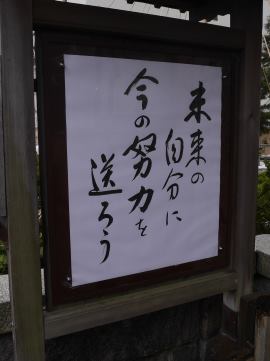 未来の
自分に
今の努力を
送ろう